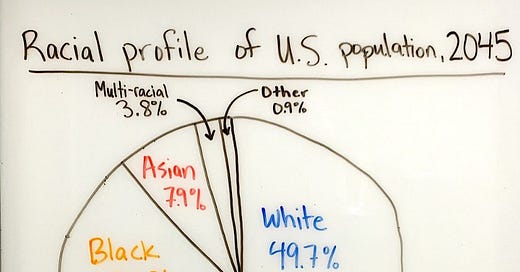 Racial profile of U.S. population, 2045
Multi-racial
3.8%
Other
0.9%
Asian
7.9%
White
49.7%
Black